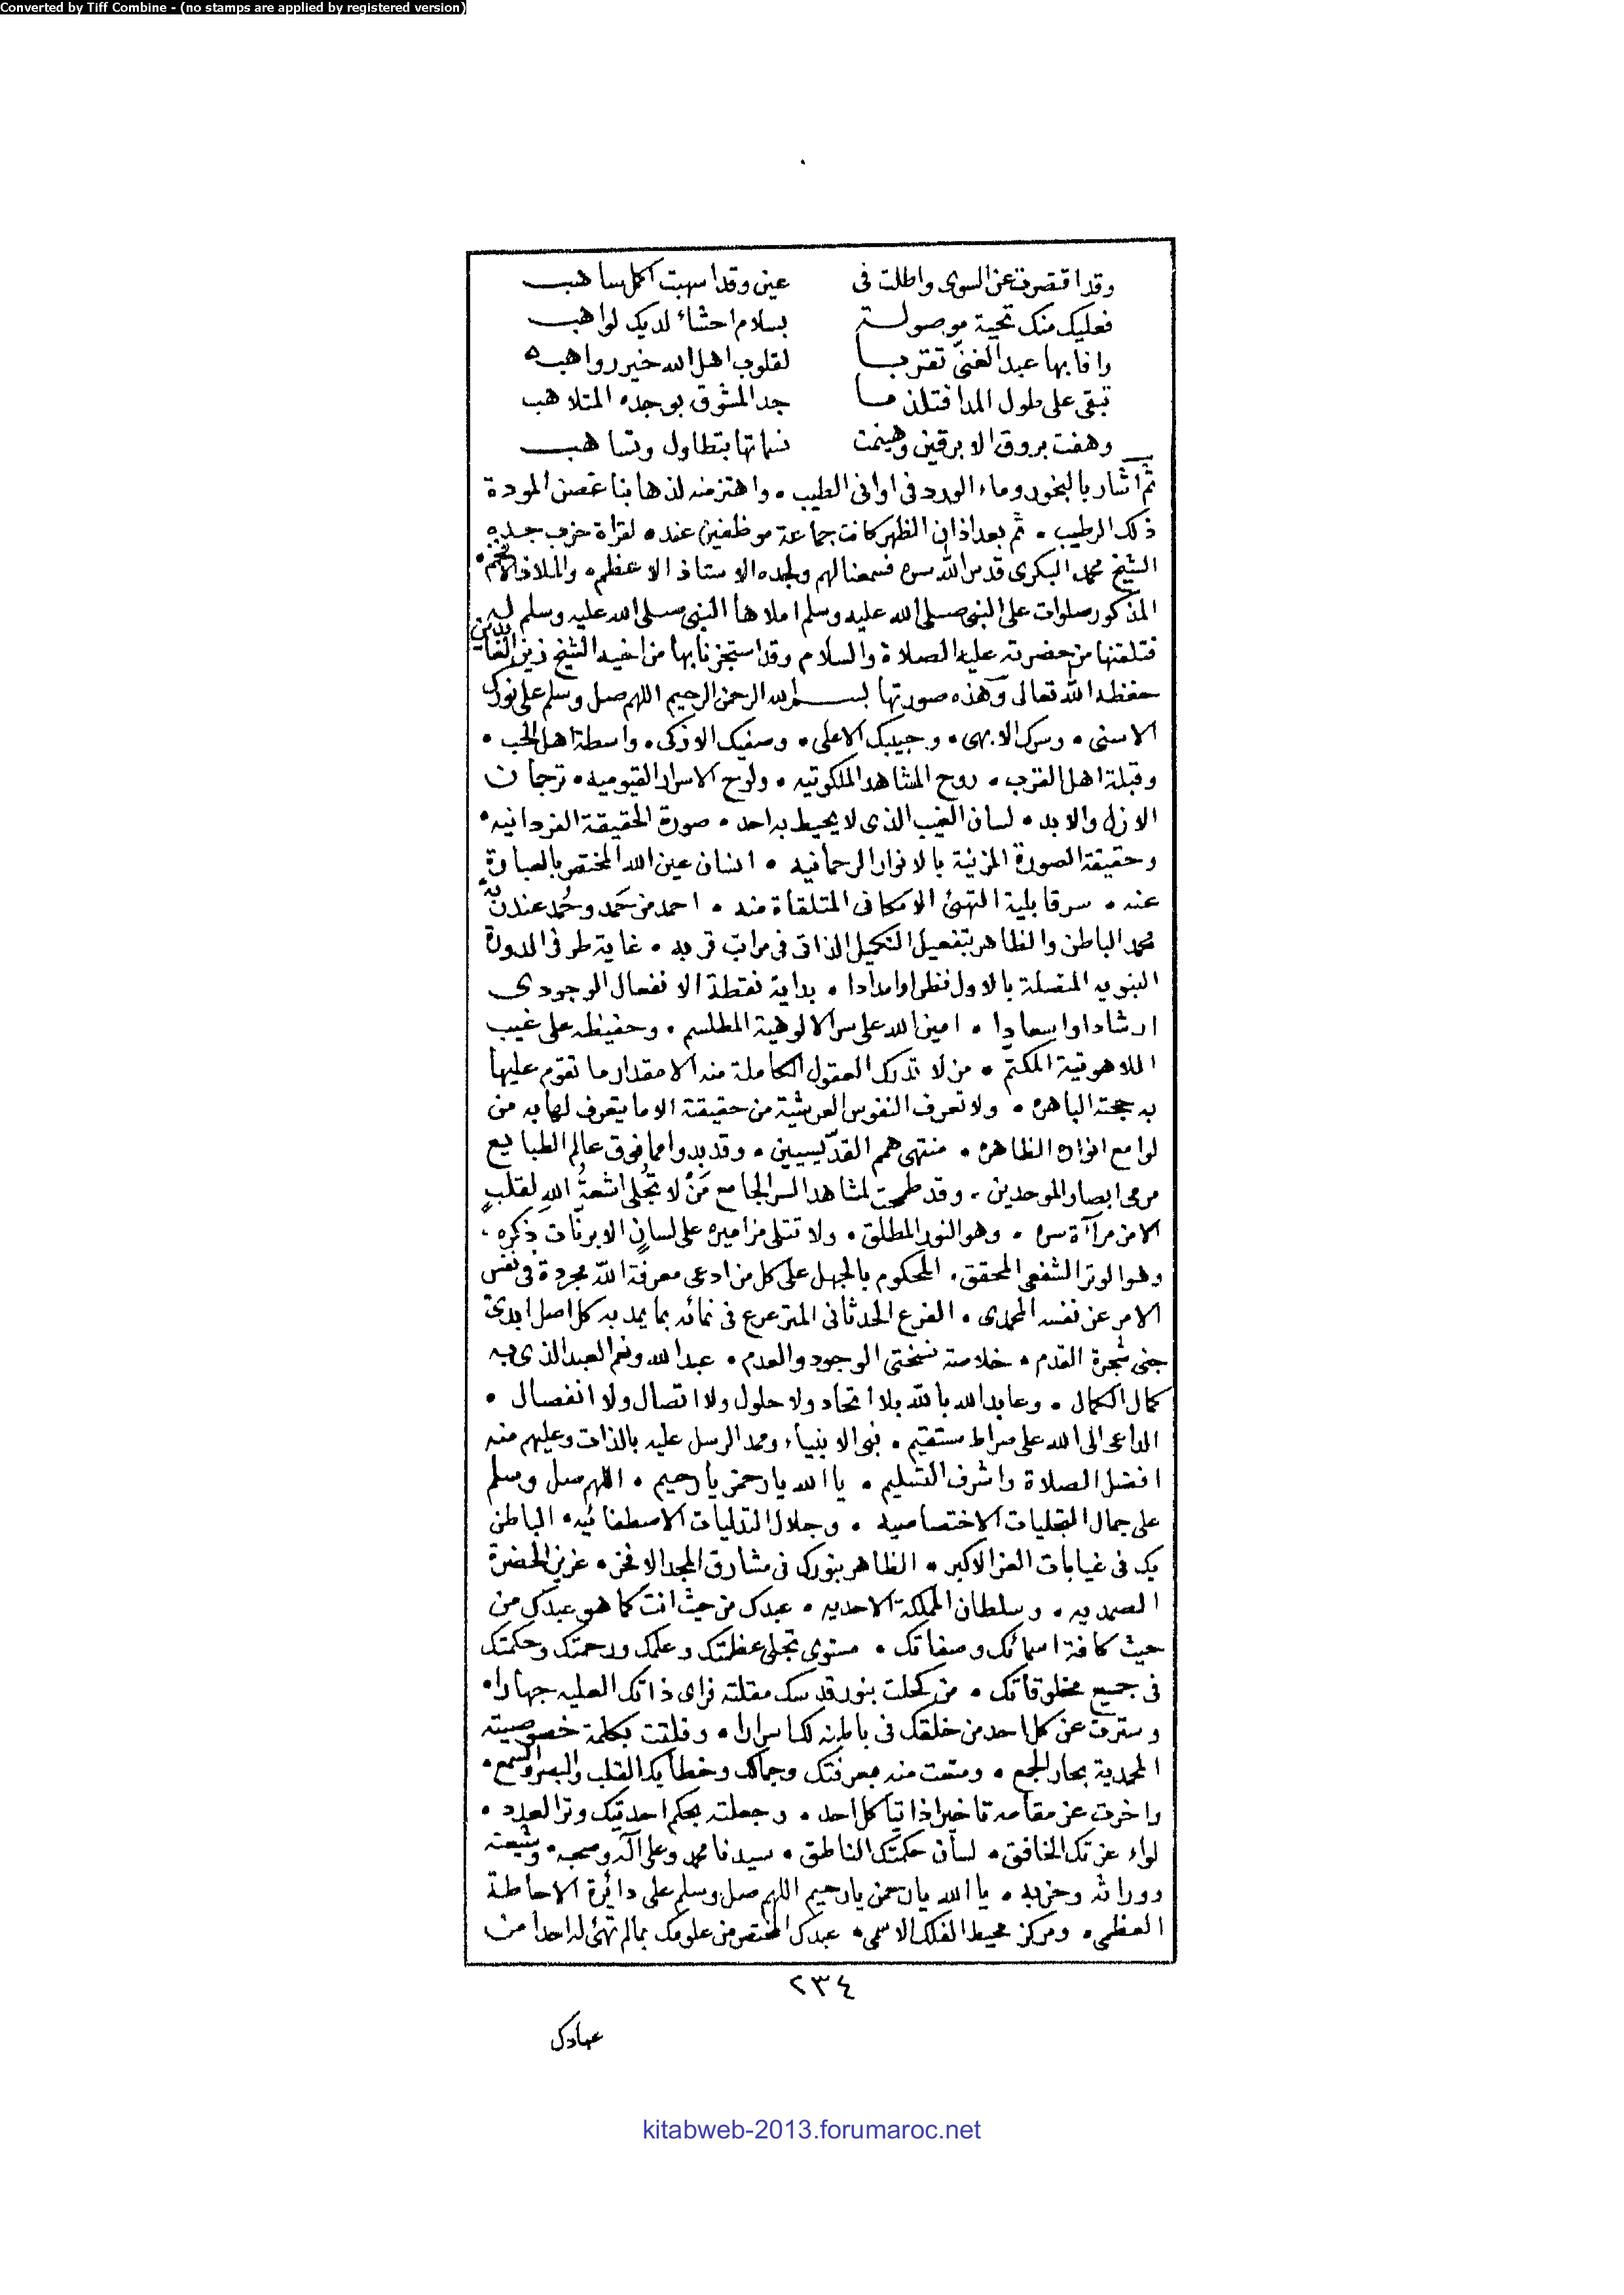 Converted by Tiff Combine - (no stamps are applied by registered version)
وقد اقتصرت عن السوى واطلت فى عينى وقد اسهبت اكمل ساهب
فعليك منك تحية موصولة بسلام احشاء لديك لواهب
وافا بها عبد الغنى تقربا لقلوب اهل الله خير رواهب
تبقى على طول المدا فتلذ ما جد المشوق بوجده المتلاهب
وهفت بروق الابرقين وهينمت نسماتها بتطاول وتساهب
ثم اشار بالبخور وماء الورد فى اوانى الطيب ٠ واهتز منه لذهابنا غصن المودة
ذلك الرطيب ٠ ثم بعد اذان الظهر كانت جماعة موظفين عنده لقراة حزب جده
الشيخ محمد البكرى قدس الله سره فسمعنا لهم ولجده الاستاذ الاعظم ٠ والملاذ الافخم ٠
المذكور صلوات على النبى صلى الله عليه وسلم املاها النبى صلى الله عليه وسلم ليه
فتلقنها من حضرته عليه الصلاة والسلام وقد استجزنا بها من اخيه الشيخ زين العابدين
حفظه الله تعالى وهذه صورتها بسم الله الرحمن الرحيم اللهم صل وسلم على نورك
الاسنى ٠ وسرك الابهى ٠ وحبيبك الاعلى ٠ وصفيك الازكى ٠ واسطة اهل الحب ٠
وقبلة اهل القرب ٠ روح المشاهد الملكوتيه ٠ ولوح الاسرار القيوميه ٠ ترجمان
الازل والابد ٠ لسان الغيب الذى لا يحيط به احد ٠ صورة الحقيقة الفردانيه ٠
وحقيقة الصورة المزينة بالانوار الرحمانيه ٠ انسان عين الله المختص بالعبارة
عنه ٠ سر قابلية التهئ الامكانى المتلقاة منه ٠ احمد من حَمد وحُمد عند ربه
محمد الباطن والظاهر بتفعيل التكميل الذاتى فى مراتب قربه ٠ غاية طرفى الدورة
النبويه المتصلة بالاول نظرا وامدادا ٠ بداية نقطة الانفعال الوجودى
ارشادا واسعادا ٠ امين الله على سر الالوهية المطلسم ٠ وحفيظه على غيب
اللاهوتية المكتم ٠ من لا تدرك العقول الكاملة منه الا مقدار ما تقوم عليها
به حجته الباهره ٠ ولا تعرف النفوس العرشية من حقيقة الا ما يتعرف لها به من
لوامع انواره الظاهره ٠ منتهى همم القدّيسيين ٠ وقد بدوا مما فوق عالم الطبايع
مرمى ابصار الموحدين ٠ وقد طمحت لمشاهد السر الجامع مَنْ لا تُجلى اشعةُ اللهِ لقلبٍ
الا من مرآة سره ٠ وهو النور المطلق ٠ ولا تتلى مزاميره على لسانٍ الا برنّات ذكره ٠
وهو الوتر الشفعى المحقق ٠ المحكوم بالجهل على كل من ادعى معرفة الله مجردة فى نفس
الامر عن نفسه المحمدى ٠ الفرع الحدثانى المترعرع فى نمائه بما يمد به كل اصل ابدىّ
جنى شجرة القدم ٠ خلاصة نسختى الوجود والعدم ٠ عبد الله ونعم العبد الذى به
كمال الكمال ٠ وعابد الله بالله بلا اتحاد ولا حلول ولا اتصال ولا انفصال ٠
الداعى الى الله على صراط مستقيم ٠ نبى الانبياء وممد الرسل عليه بالذات وعليهم منه
افضل الصلاة واشرف التسليم ٠ يا الله يا رحمن يا رحيم ٠ اللهم صل وسلم
على جمال التجليات الاختصاصيه ٠ وجلال التدليات الاصطفائيه ٠ الباطن
بك فى غيابات العز الاكبر ٠ الظاهر بنورك فى مشارق المجد الافخر ٠ عزيز الحضرة
الصمديه ٠ وسلطان المملكة الاحديه ٠ عبدك من حيث انت كما هو عبدك من
حيث كافة اسمائك وصفاتك ٠ مستوى تجلى عظمتك وعلمك ورحمتك وحكمتك
فى جميع مخلوقاتك ٠ من كحلت بنور قدسك مقلته فراى ذاتك العليه جهارا ٠
وسترت عن كل احد من خلقك فى باطنه لك اسرارا ٠ وفلقت بكلمة خصوصيته
المحمدية بحار الجمع ٠ ومتعت منه بمعرفتك وجمالك وخطابك القلب والبصر والسمع ٠
واخرت عن مقامه تاخيرا ذاتيا كل احد ٠ وجعلته بحكم احديتك وتر العدد ٠
لواء عزتك الخافق ٠ لسان حكمتك الناطق ٠ سيدنا محمد وعلى آله وصحبه ٠ وشيعته
ووراثه وحزبه ٠ يا الله يا رحمن يا رحيم اللهم صل وسلم على دائرة الاحاطة
العظمى ٠ ومركز محيط الفلك الاسمى ٠ عبدك المختص من علومك بما لم تهئ له احدا من
٢٣٤
عبادك
kitabweb-2013.forumaroc.net